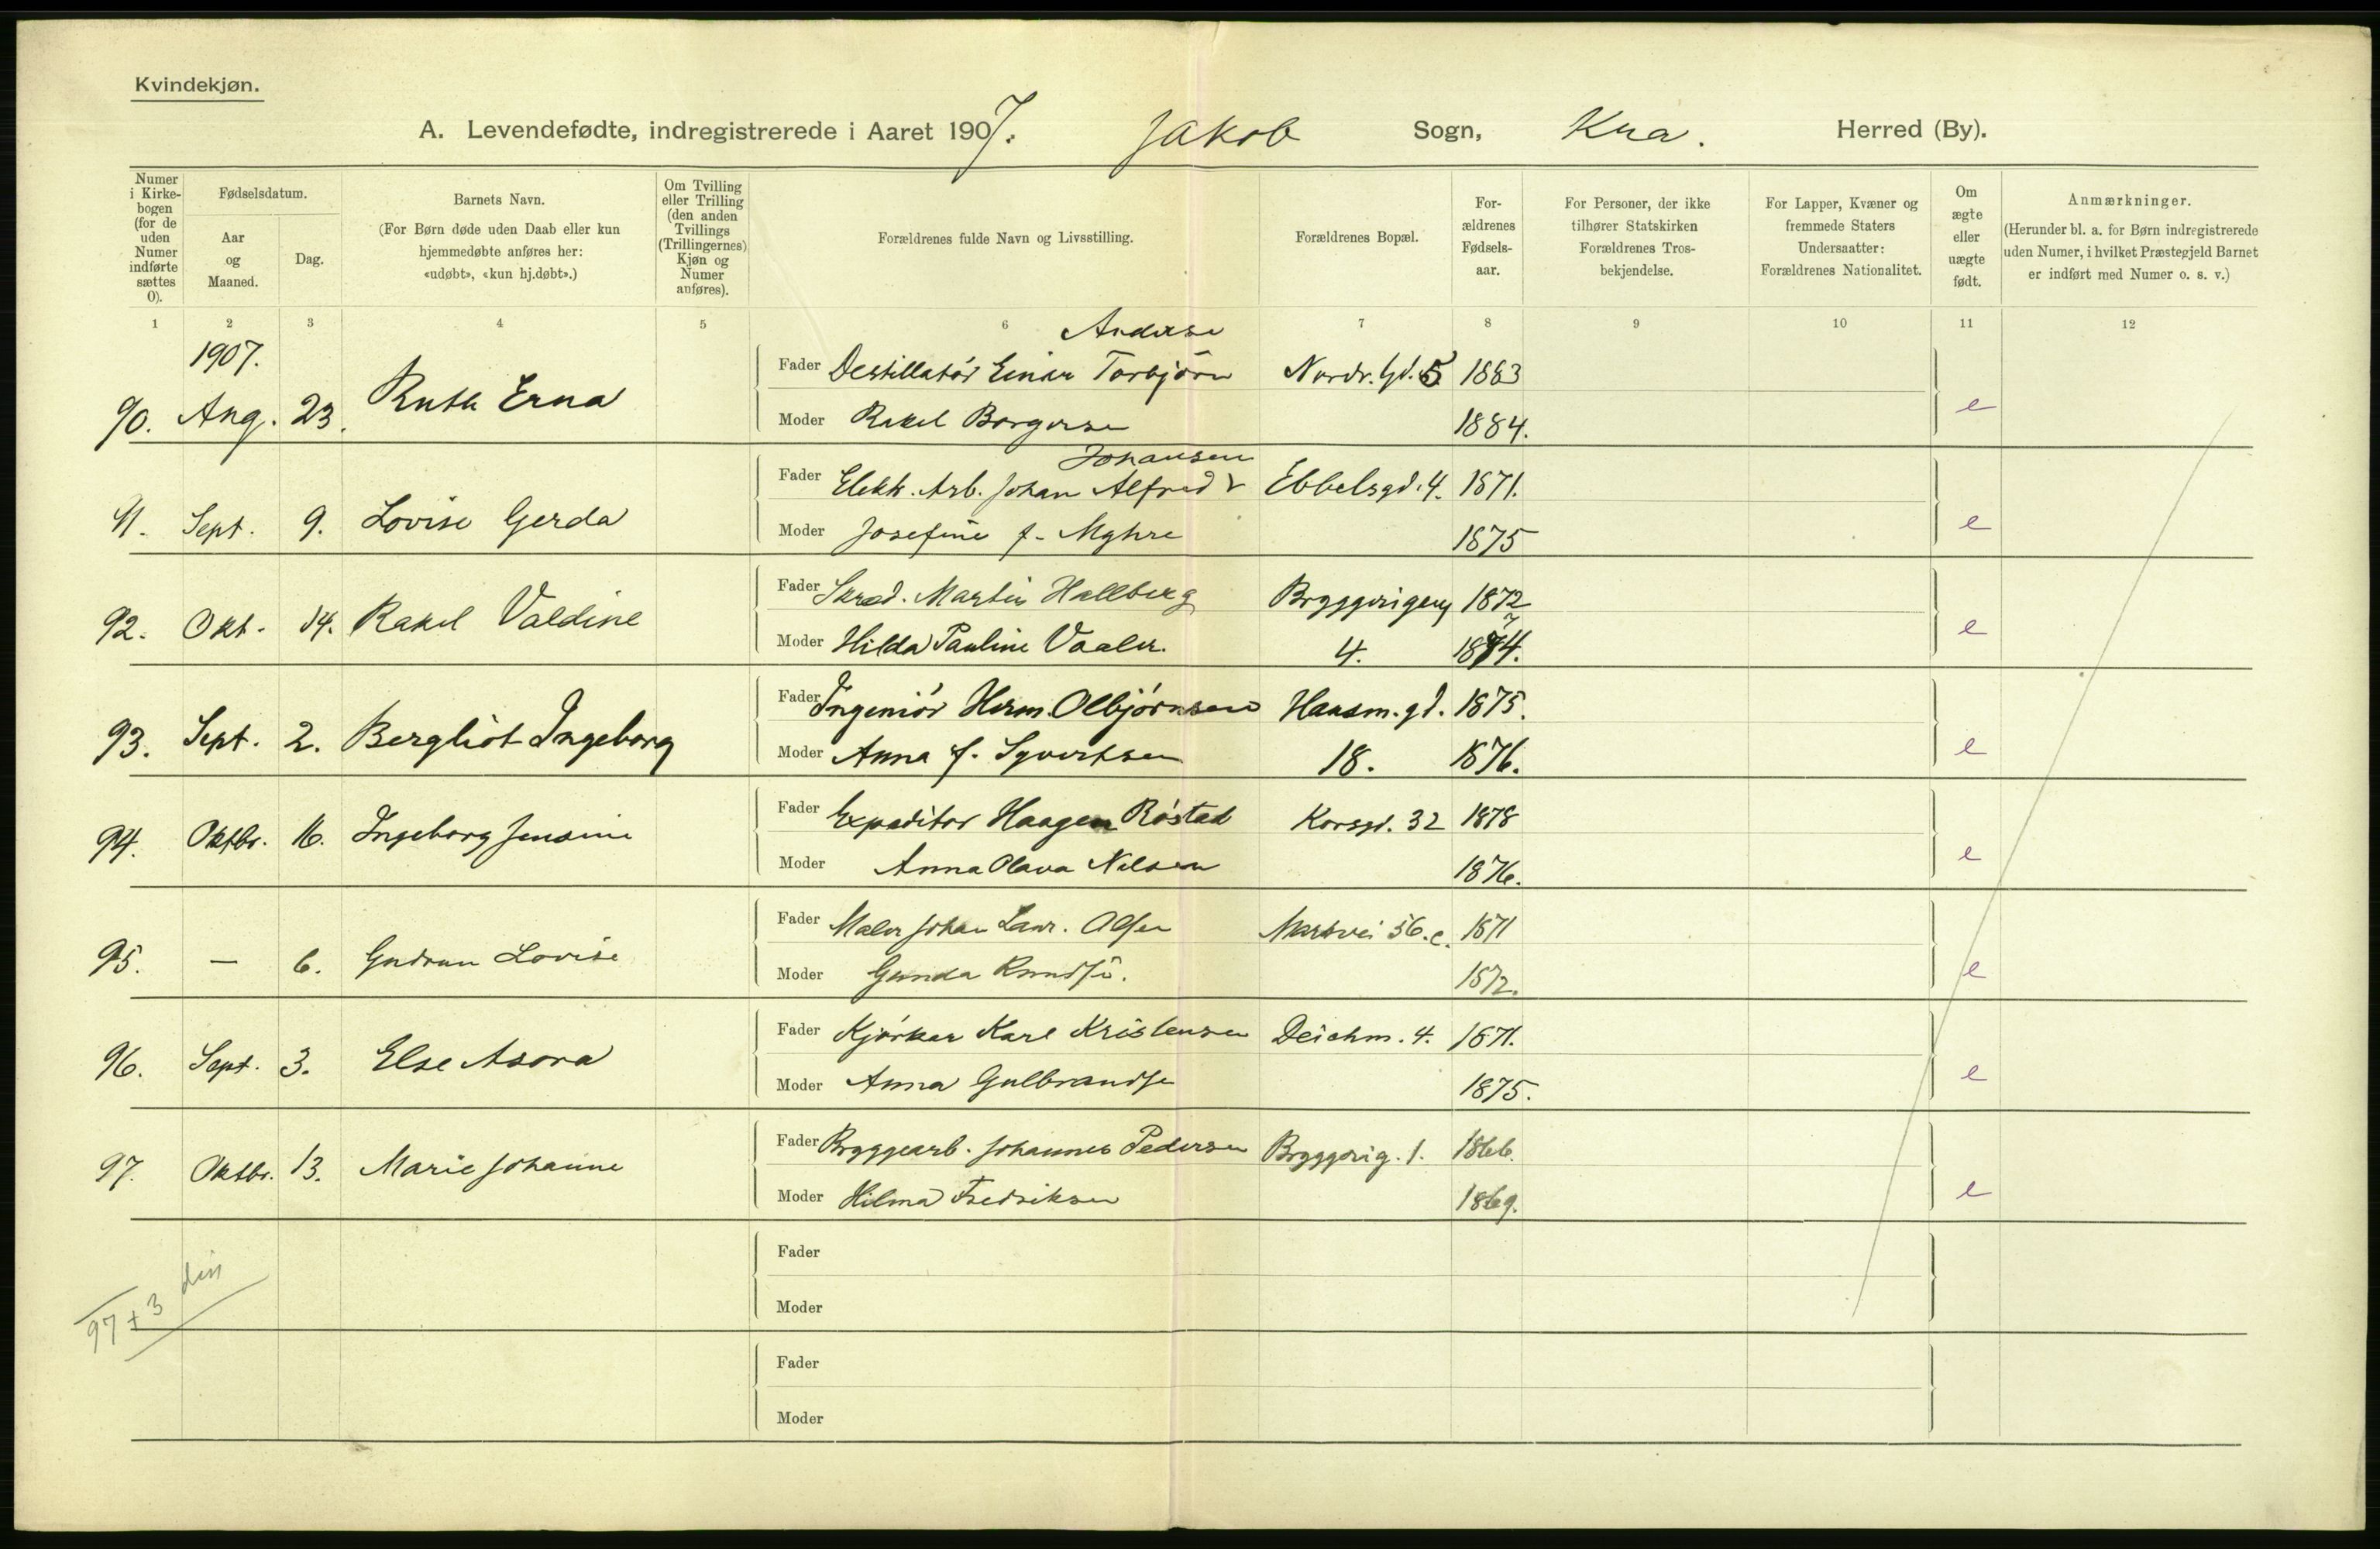 Kvindekjøn.
A. Levendefødte, indregistrerede i Aaret 1907. Jakob Sogn, Kra. Herred (By).
Numer i Kirkebogen (for de uden Numer indførte sættes 0).
Fødselsdatum.
Aar og Maaned.
Dag.
Barnets Navn.
(For Børn døde uden Daab eller kun hjemmedøbte anføres her: «udøbt», «kun hj.døbt».)
Om Tvilling eller Trilling (den anden Tvillings (Trillingernes) Kjøn og Numer anføres).
Forældrenes fulde Navn og Livsstilling.
Forældrenes Bopæl.
Forældrenes Fødselsaar.
For Personer, der ikke tilhører Statskirken Forældrenes Trosbekjendelse.
For Lapper, Kvæner og fremmede Staters Undersaatter: Forældrenes Nationalitet.
Om ægte eller uægte født.
Anmærkninger.
(Herunder bl. a. for Børn indregistrerede uden Numer, i hvilket Præstegjeld Barnet er indført med Numer o. s. v.)
1 2 3 4 5 6 7 8 9 10 11 12
1907.
Andersen
90. Aug. 23. Ruth Erna Fader Destillatør Einar Torbjørn Nordr. Gd. 5 1883
Moder Rakel Borgersen 1884. e
Johansen
91. Sept. 9. Lovise Gerda Fader Elektr. Arb. Johan Alfred Ebbelsgd. 4. 1871.
Moder Josefine f. Myhre 1875 e
92. Okt. 14. Rakel Valdine Fader Skræd. Martin Hallberg Bryggerigang 1872
Moder Hilda Pauline Vaaler. 4. 1874. e
93. Sept. 2. Bergliot Ingeborg Fader Ingeniør Herm. Olbjørnsen Hausm. gd. 1875.
Moder Anna f. Syvertsen 18. 1876. e
94. Oktbr. 16. Ingeborg Jensine Fader Expeditør Haagen Røstad Korsgd. 32 1878
Moder Anna Olava Nilsen 1876. e
95. — 6. Gudrun Lovise Fader Maler Johan Laur. Olsen Markvei 56. c. 1871
Moder Gunda 1872. e
96. Sept. 3. Else Asora Fader Kjørkar Karl Kristensen Deichm. 4. 1871.
Moder Anna Gulbrandsen 1875. e
97. Oktbr. 13. Marie Johanne Fader Bryggearb. Johannes Pedersen Bryggerig. 1. 1866.
Moder Hilma Fredriksen 1869. e
Fader
Moder
97 + 3
Fader
Moder